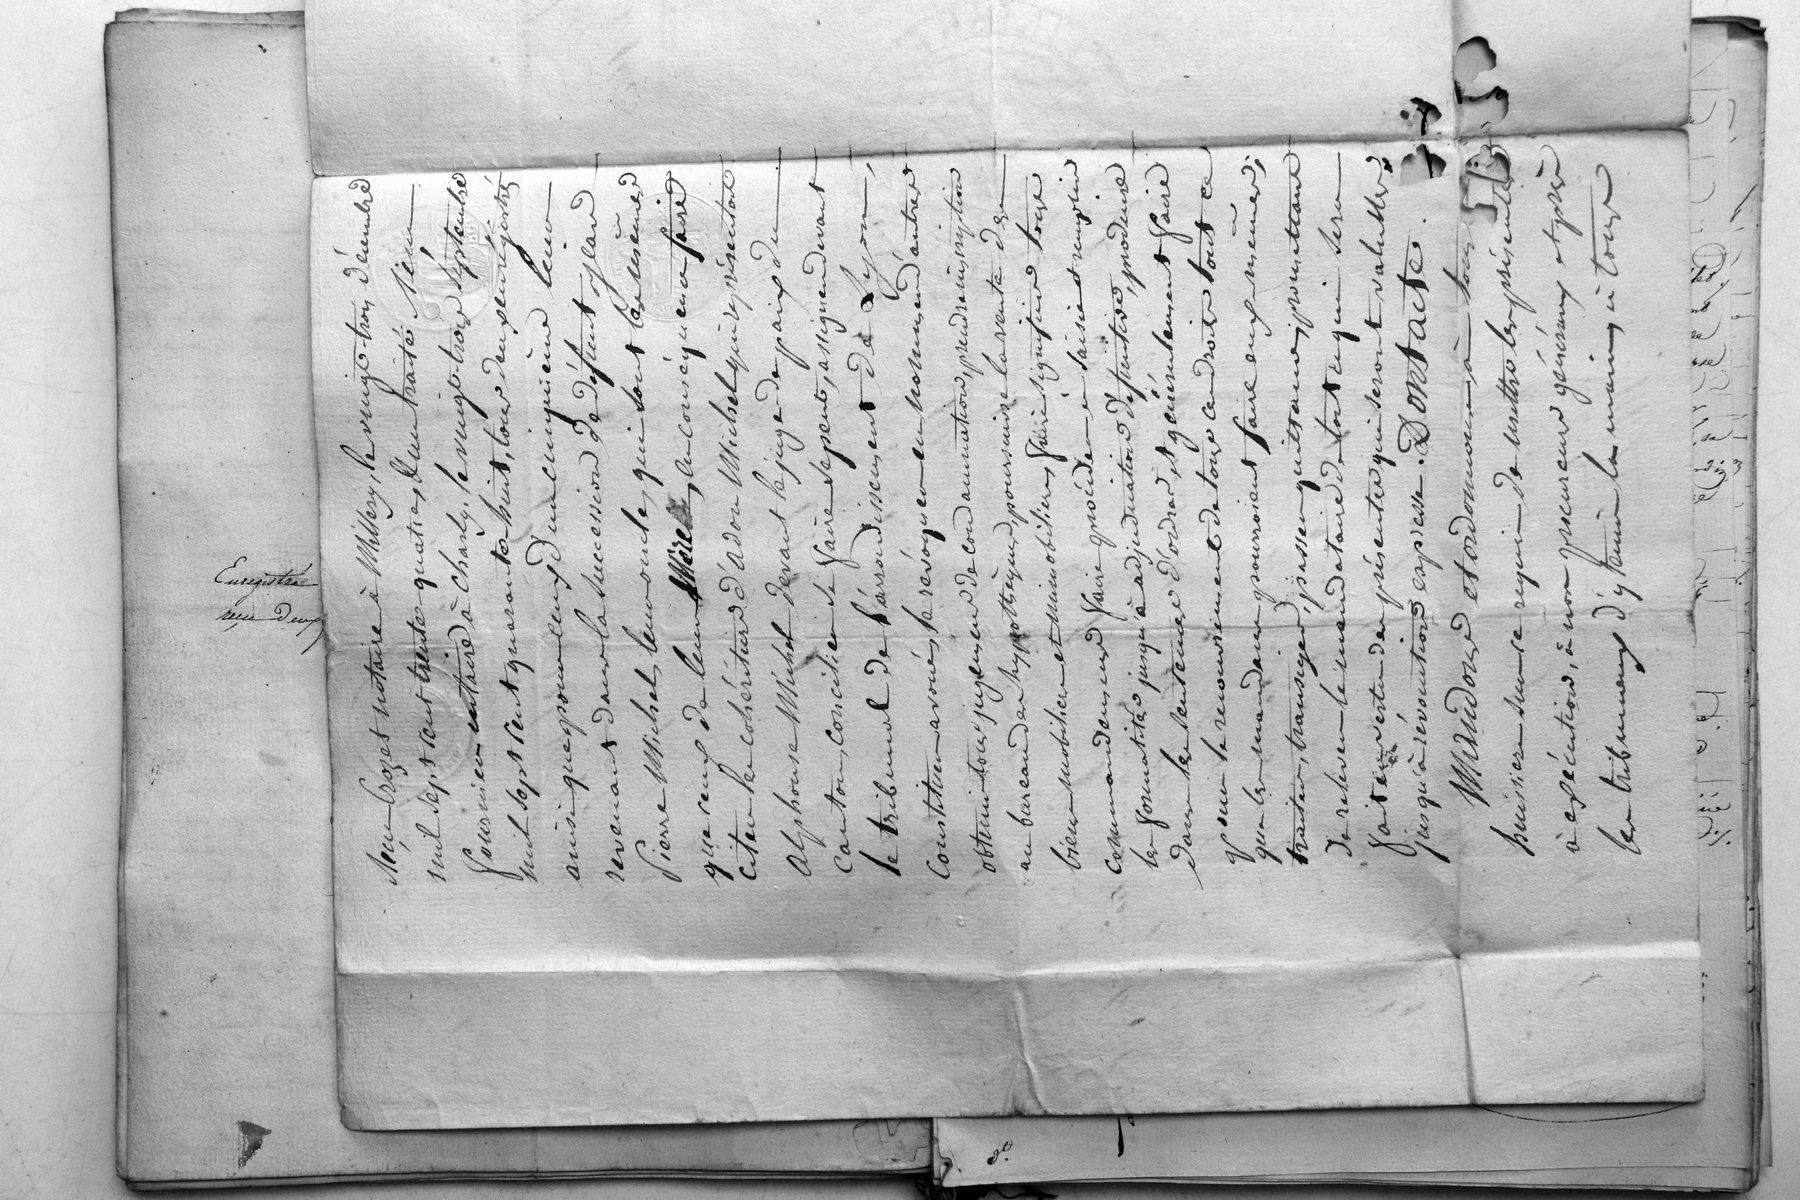 Rémi Crozet notaire à Millery, le vingt-trois décembre
mil sept cent trente quatre, d'un traité reçu
Fournier notaire à Charly, le vingt-trois septembre
mil sept cent quarante-huit, tous deux enregistrés
ainsi que pour ceux d'un cinquième leur
revenant dans la succession de défunt
Pierre Michel, leur oncle, qui sont la
que ceux de leur Mère, en conséquence faire
citer les cohéritiers d' Michel qui représentent
Alphonse Michel devant le juge de paix du
canton, concilier si faire se peut, assigner devant
le tribunal de l'arrondissement de Lyon,
constituer avoués, le révoquer en nommer d'autres
obtenir tous jugemens de condamnation, prendre inscription
au bureau des hypothèques, poursuivre la vente des
biens mobiliers et immobiliers, faire signifier tous
commandemens faire procéder à saisie et remplir
les formalités jusqu'à adjudication définitive, produire
dans les sentences d'ordres, et généralement faire
pour le recouvrement de tous ces droits tout ce
que les mandans pourroient faire eux mêmes,
traiter, transiger, passer quittance, promettant
de relever le mandataire de tout ce qui sera
fait en vertu des présentes qui seront valables
jusqu'à révocation expresse. Dont acte.
Mandons et ordonnons, à tous
huissiers sur ce requis de mettre les présentes
à exécution, à nos procureurs généraux et près
les tribunaux d'y tenir la main, à tous
Enregistré
reçu deux